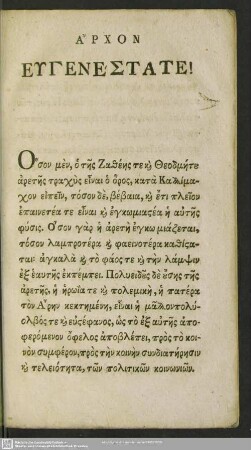 ἌΡΧΟΝ
ΕΥΓΕΝΕ΄ΣΤΑΤΕ!
Ὅσον μὲν, ὁ τῆς Ζαθέης τε κ̀ Θεοδμήτε
ἀρετῆς τραχὺς εἶναι ὁ ὄρος, κατὰ Καλλίμα-
χον εἰπεῖν, τόσον δὲ, βέβαια, κ̀ ἔτι πλεῖον
ἐπαινετέα τε εἶναι κ̀ ἐγκωμιαςέα ἡ αὐτῆς
φύσις. Ὅσον γὰρ ἡ ἀρετὴ ἐγκωμιάζεται,
τόσον λαμπροτέρα κ̀ φαεινοτέρα καθίςα-
ται· ἀγκαλὰ κ̀ τὸ φάος τε κ̀ τὴν λάμψιν
ἐξ ἑαυτῆς ἐκπέμπει. Πολυειδοῦς δὲ ὄσης τῆς
ἀρετῆς, ἡ ἡρωΐα τε κ̀ πολεμικὴ, ἡ πατέρα
τὸν Ἄρην κεκτημένη, εἶναι ἡ μᾶλλον πολύ-
ολβός τε κ̀ εὐςέφανος, ὡς τὸ ἐξ αὐτῆς ἀπο-
φερόμενον ὄφελος ἀποβλέπει, πρὸς τὸ κοι-
νὸν συμφέρον, πρὸς τὴν κοινὴν συνδιατήρησιν
κ̀ τελειότητα, τῶν πολιτικῶν κοινωνιῶν.